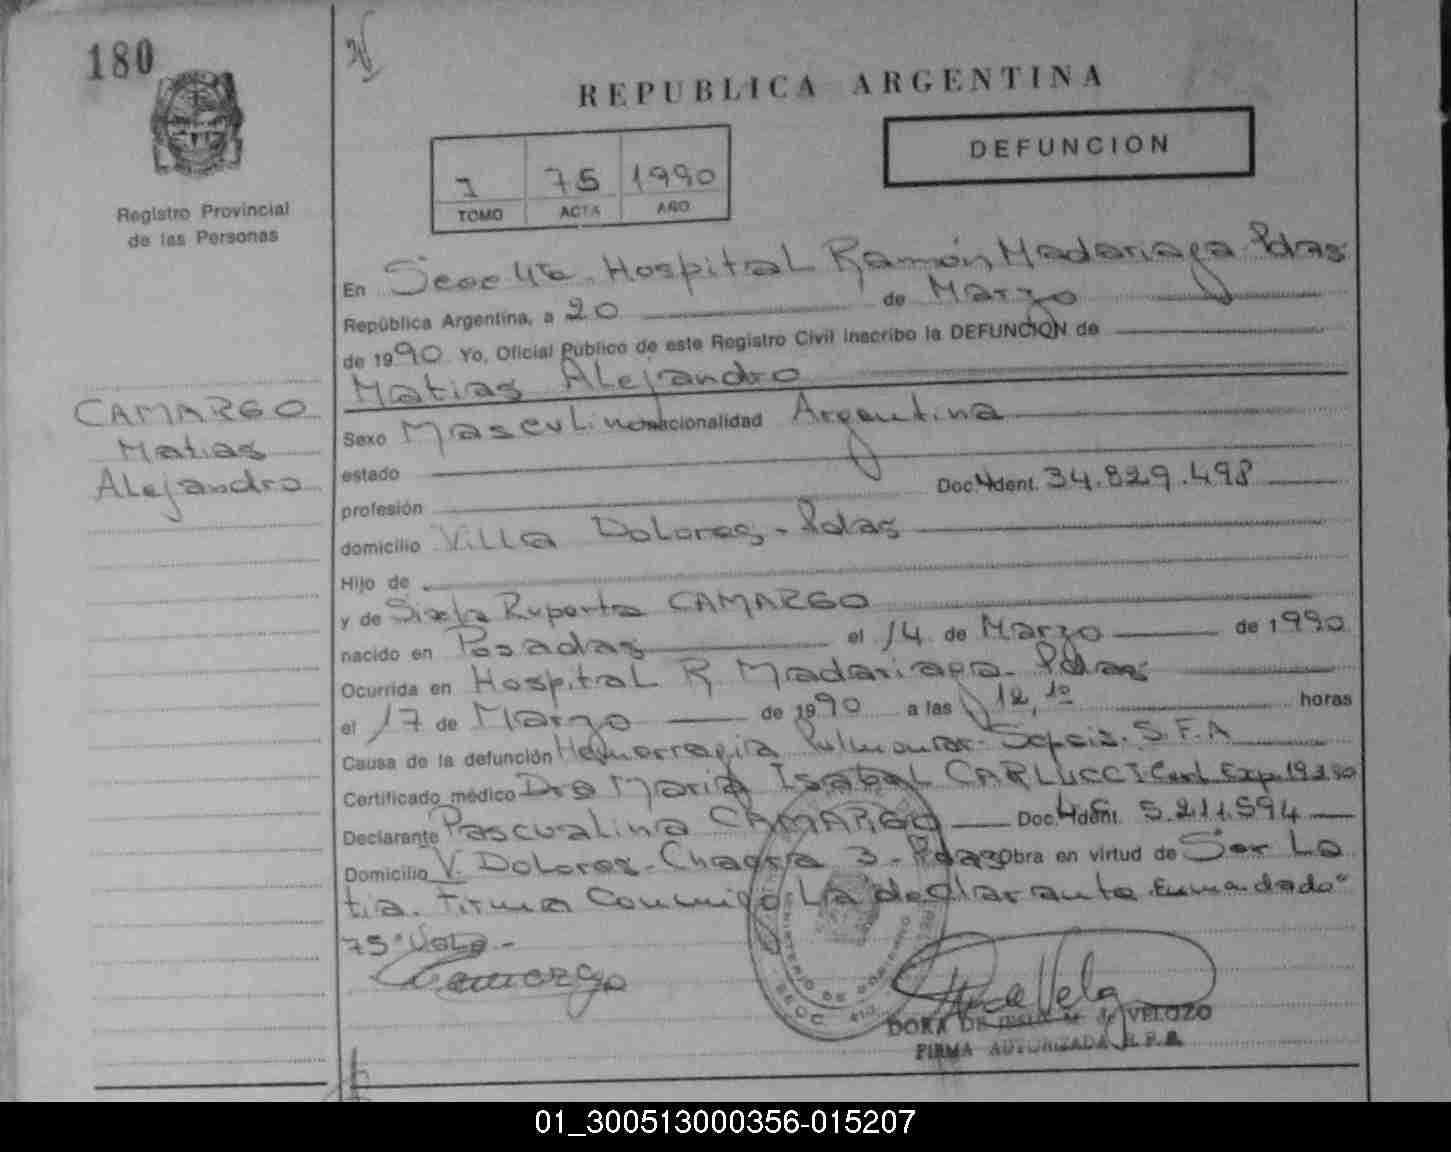 180
REPUBLICA ARGENTINA
DEFUNCION
1 75 1990
TOMO ACTA AÑO
Registro Provincial
de las Personas
CAMARGO
Matias
Alejandro
En Secc 4ta Hospital Ramón Madariaga Pdas
República Argentina, a 20 de Marzo
de 1990 Yo, Oficial Público de este Registro Civil inscribo la DEFUNCION de
Matias Alejandro
Sexo Masculino nacionalidad Argentina
estado
profesión Doc. Ident. 34.829.498
domicilio Villa Dolores - Pdas
Hijo de
y de Sixta Ruperta CAMARGO
nacido en Posadas el 14 de Marzo de 1990
Ocurrida en Hospital R Madariaga Pdas
el 17 de Marzo de 1990 a las 12,10 horas
Causa de la defunción Hemorragia Pulmonar - Sepsis. S.F.A
Certificado médico Dra Maria Isabel CARLUCCI Cert Exp. 19.3.90
Declarante Pascualina CAMARGO Doc. Ident. 5.211.594
Domicilio V. Dolores - Chacra 3 - Pdas Obra en virtud de Ser La
tia. Firma Conmigo La declarante. Enmendado"
75" Vale.-
Camargo
MINISTERIO DE GOBIERNO
SECC. 4ta.
DORA DE VELOZO
FIRMA AUTORIZADA R.P.P.
01_300513000356-015207